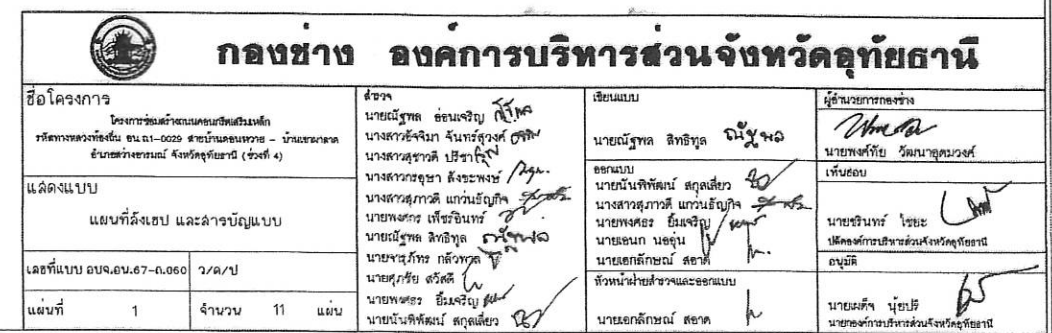 กองช่าง องค์การบริหารส่วนจังหวัดอุทัยธานี
ชื่อโครงการ
โครงการซ่อมสร้างถนนคอนกรีตเสริมเหล็ก
รหัสทางหลวงท้องถิ่น อน.ถ1-0029 สายบ้านดอนหวาย - บ้านเขาผาลาด
อำเภอสว่างอารมณ์ จังหวัดอุทัยธานี (ช่วงที่ 4)
แสดงแบบ
แผนที่สังเขป และสารบัญแบบ
เลขที่แบบ อบจ.อน.67-ถ.060 ว/ด/ป
แผ่นที่ 1 จำนวน 11 แผ่น
สำรวจ
นายณัฐพล อ่อนเจริญ
นางสาวอัจจิมา จันทร์สุวงศ์
นางสาวสุชาวดี ปรีชา
นางสาวกฤษา สังขะพงษ์
นางสาวสุภาวดี แก่วนธัญกิจ
นายพงศกร เพ็ชร์อินทร์
นายณัฐพล สิทธิทูล
นายจารุภัทร กลัวพาล
นายศุภชัย สวัสดี
นายพงศธร ยิ้มเจริญ
นายนันทิพัฒน์ สกุลเสี่ยว
เขียนแบบ
นายณัฐพล สิทธิทูล ณัฐพล
ออกแบบ
นายนันทิพัฒน์ สกุลเสี่ยว
นางสาวสุภาวดี แก่วนธัญกิจ
นายพงศธร ยิ้มเจริญ
นายเอนก นออุ่น
นายเอกลักษณ์ สอาด
หัวหน้าฝ่ายสำรวจและออกแบบ
นายเอกลักษณ์ สอาด
ผู้อำนวยการกองช่าง
นายพงศ์ทัย วัฒนาอุดมวงศ์
เห็นชอบ
นายชรินทร์ ไชยะ
ปลัดองค์การบริหารส่วนจังหวัดอุทัยธานี
อนุมัติ
นายเผด็จ นุ้ยปรี
นายกองค์การบริหารส่วนจังหวัดอุทัยธานี